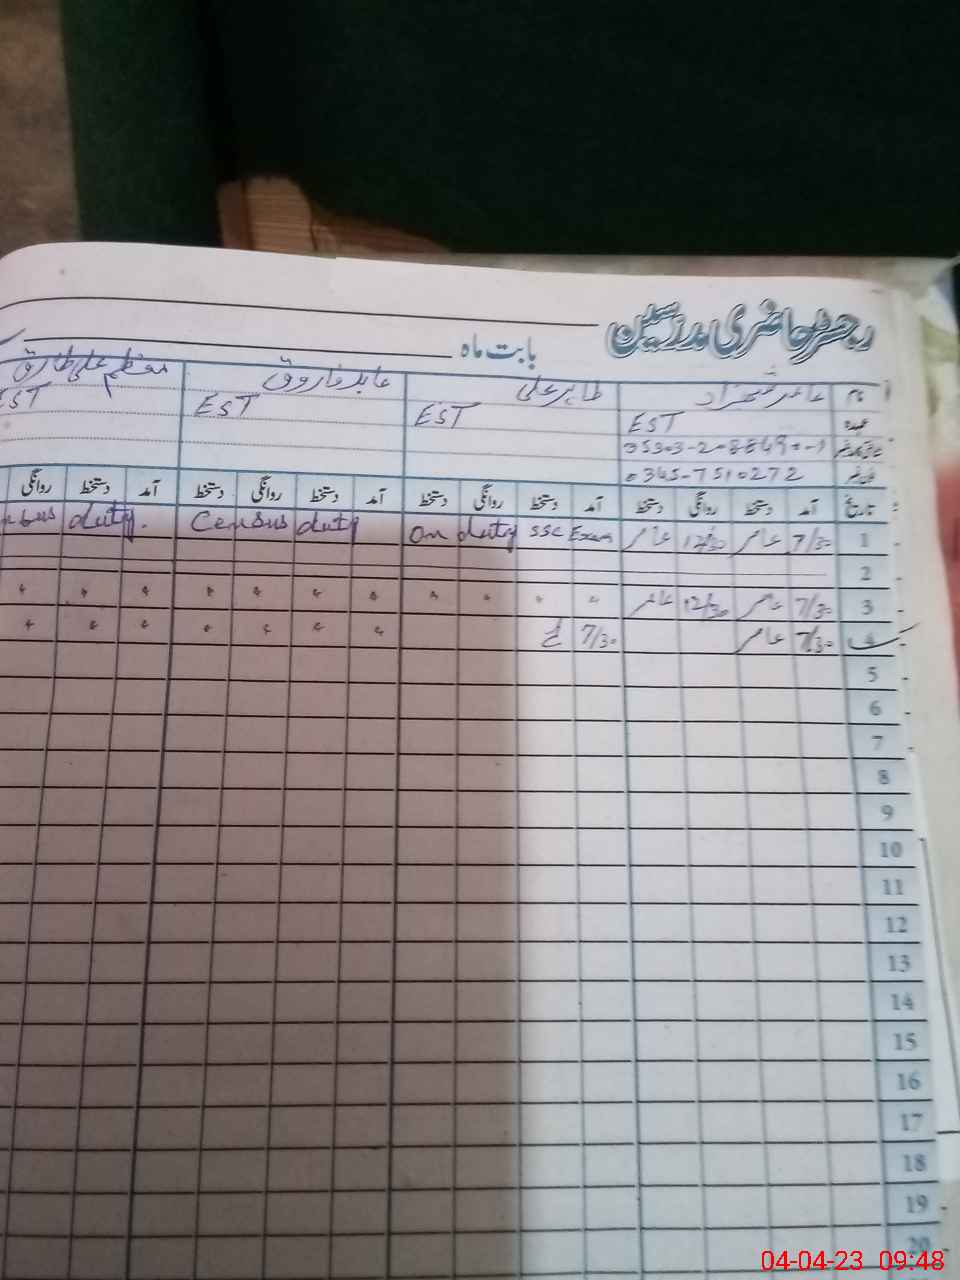 رجسٹر حاضری مدرسین
بابت ماہ
نام عامر شہزاد طاہر علی عابد فاروق معظم علی طارق
عہدہ EST EST EST EST
0345-7510272
تاریخ آمد دستخط روانگی دستخط آمد دستخط روانگی دستخط آمد دستخط روانگی دستخط آمد دستخط روانگی
1 7/30 عامر 12/30 عامر On duty SSC Exam Census duty duty.
2
3 7/30 عامر 12/30 عامر 〃 〃 〃 〃 〃 〃 〃 〃 〃 〃 〃
4 7/30 عامر 7/30 〃 〃 〃 〃 〃 〃 〃
5
6
7
8
9
10
11
12
13
14
15
16
17
18
19
20
04-04-23 09:48